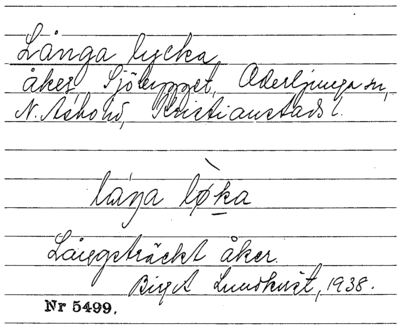 Långa lycka
åker, Sjötorpet, Oderljunga sn,
N. Åsbo hd, Kristianstads l.
låŋa lø̀ka
Långsträckt åker.
Birgit Lundkvist, 1938.
Nr 5499.